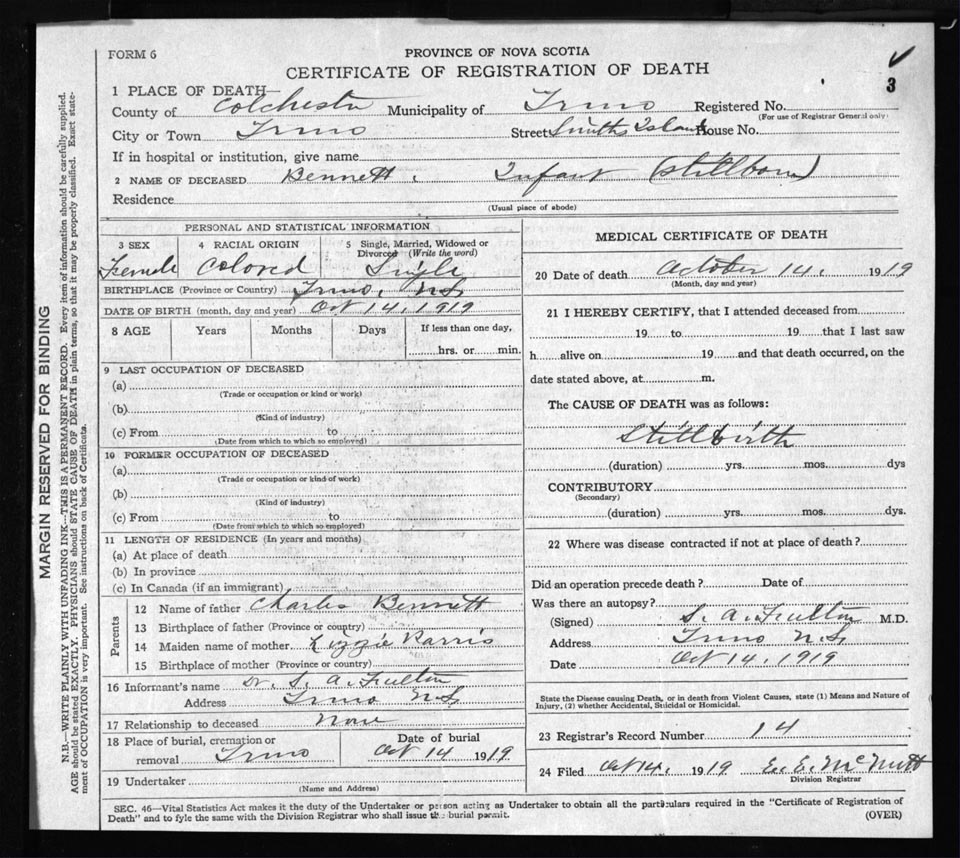 FORM 6
PROVINCE OF NOVA SCOTIA
CERTIFICATE OF REGISTRATION OF DEATH
3
1 PLACE OF DEATH—
County of Colchester Municipality of Truro Registered No.
(For use of Registrar General only)
City or Town Truro Street Smiths Island House No.
If in hospital or institution, give name
2 NAME OF DECEASED Bennett, Infant (stillborn)
Residence
(Usual place of abode)
PERSONAL AND STATISTICAL INFORMATION
3 SEX 4 RACIAL ORIGIN 5 Single, Married, Widowed or Divorced (Write the word)
Female Colored Single
BIRTHPLACE (Province or Country) Truro, N.S.
DATE OF BIRTH (month, day and year) Oct 14, 1919
8 AGE Years Months Days If less than one day,
hrs. or min.
9 LAST OCCUPATION OF DECEASED
(a)
(Trade or occupation or kind or work)
(b)
(Kind of industry)
(c) From to
(Date from which to which so employed)
10 FORMER OCCUPATION OF DECEASED
(a)
(Trade or occupation or kind of work)
(b)
(Kind of industry)
(c) From to
(Date from which to which so employed)
11 LENGTH OF RESIDENCE (In years and months)
(a) At place of death
(b) In province
(c) In Canada (if an immigrant)
Parents
12 Name of father Charles Bennett
13 Birthplace of father (Province or country)
14 Maiden name of mother Lizzie Parris
15 Birthplace of mother (Province or country)
16 Informant's name Dr. S. A. Fulton
Address Truro N.S.
17 Relationship to deceased None
18 Place of burial, cremation or removal Truro Date of burial Oct 14 1919
19 Undertaker
(Name and Address)
MEDICAL CERTIFICATE OF DEATH
20 Date of death October 14, 1919
(Month, day and year)
21 I HEREBY CERTIFY, that I attended deceased from
19 to 19 that I last saw
h alive on 19 and that death occurred, on the
date stated above, at m.
The CAUSE OF DEATH was as follows:
Stillbirth
(duration) yrs. mos. dys
CONTRIBUTORY
(Secondary)
(duration) yrs. mos. dys.
22 Where was disease contracted if not at place of death?
Did an operation precede death? Date of
Was there an autopsy?
(Signed) S. A. Fulton M.D.
Address Truro N.S.
Date Oct 14, 1919
State the Disease causing Death, or in death from Violent Causes, state (1) Means and Nature of
Injury, (2) whether Accidental, Suicidal or Homicidal.
23 Registrar's Record Number 14
24 Filed Oct 14, 1919 E. E. McNutt
Division Registrar
SEC. 46—Vital Statistics Act makes it the duty of the Undertaker or person acting as Undertaker to obtain all the particulars required in the "Certificate of Registration of
Death" and to fyle the same with the Division Registrar who shall issue the burial permit.
(OVER)
MARGIN RESERVED FOR BINDING
N.B.—WRITE PLAINLY WITH UNFADING INK—THIS IS A PERMANENT RECORD. Every item of information should be carefully supplied.
AGE should be stated EXACTLY. PHYSICIANS should STATE CAUSE OF DEATH in plain terms, so that it may be properly classified. Exact state-
ment of OCCUPATION is very important. See instructions on back of Certificate.